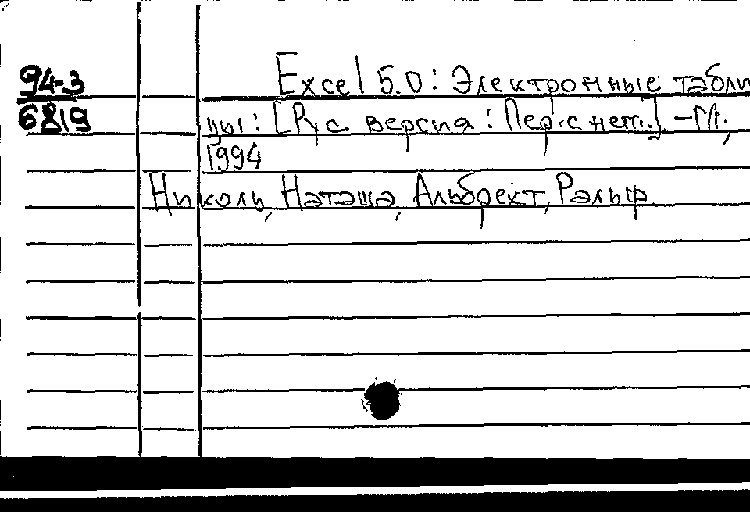 94-3
6819
Excel 5.0: Электронные табли
цы: [Рус. версия: Пер. с нем.]. - М.,
1994
Николь, Наташа, Альбрехт, Ральф